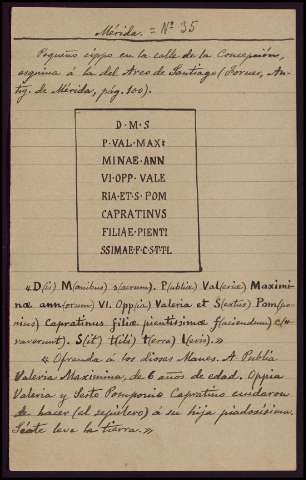 Mérida. = Nº 35
Pequeño cippo en la calle de la Concepción,
esquina á la del Arco de Santiago (Forner, An-
tig. de Mérida, pág. 100).
D · M · S
P · VAL · MAXI
MINAE · ANN
VI · OPP · VALE
RIA · ET · S · POM
CAPRATINVS
FILIAE · PIENTI
SSIMAE · F · C · S · T · T · L
«D(is) M(anibus) s(acrum). P(ublia) Val(eria) Maximi-
næ ann(orum) VI. Opp(ia) Valeria et S(extus) Pom(po-
nius) Capratinus filiæ pientisimæ f(aciendum) c(u-
raverunt). S(it) t(ibi) t(erra) l(evis).»
«Ofrenda á los dioses Manes. A Publia
Valeria Maximina, de 6 años de edad. Oppia
Valeria y Sesto Pomponio Capratino cuidaron
de hacer (el sepulcro) á su hija piadosísima.
Séate leve la tierra.»